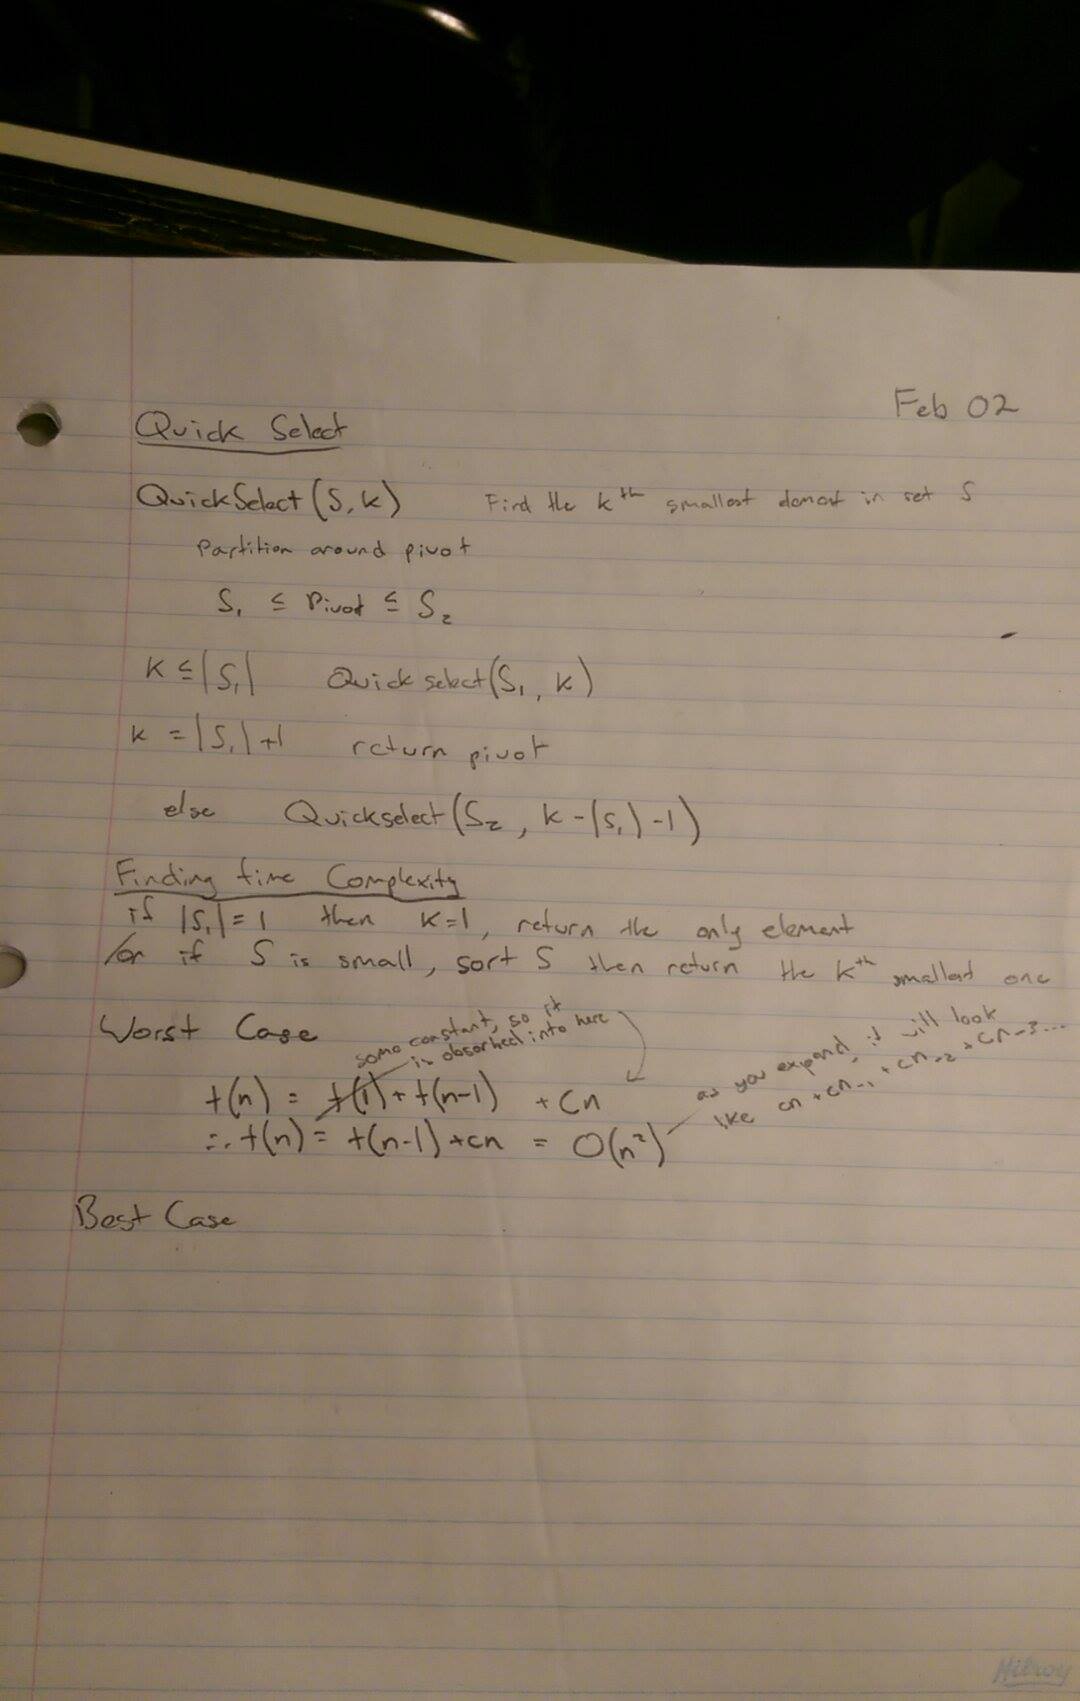 Feb 02
Quick Select
QuickSelect(S, k) Find the kᵗʰ smallest element in set S
Partition around pivot
S₁ ≤ Pivot ≤ S₂
K ≤ |S₁| Quick select(S₁, k)
k = |S₁|+1 return pivot
else Quickselect(S₂, k-|S₁|-1)
Finding time Complexity
if |S₁|=1 then k=1, return the only element
/or if S is small, sort S then return the kᵗʰ smallest one
Worst Case
some constant, so it
is absorbed into here
as you expand, it will look
like cn + cn-1 + cn-2 + cn-3...
t(n) = t(1) + t(n-1) + Cn
∴ t(n) = t(n-1) + cn = O(n²)
Best Case
Hilroy